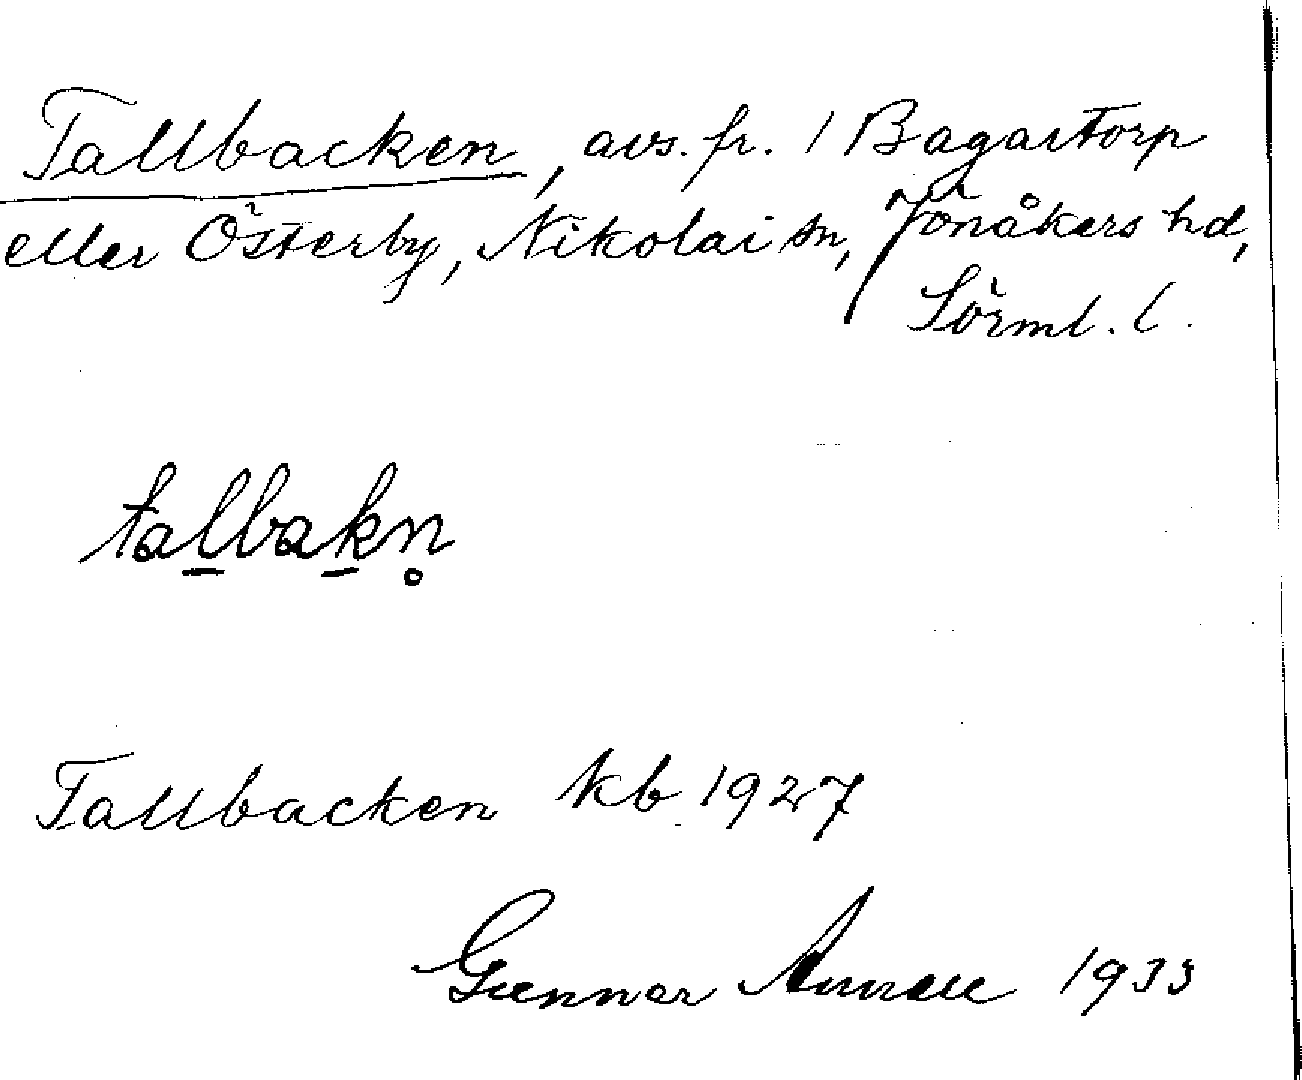 Tallbacken, avs. fr. 1 Bagartorp
eller Österby, Nikolai sn, Jönåkers hd,
Sörml. l.
talbakn̥
Tallbacken kb 1927
Gunnar 1933